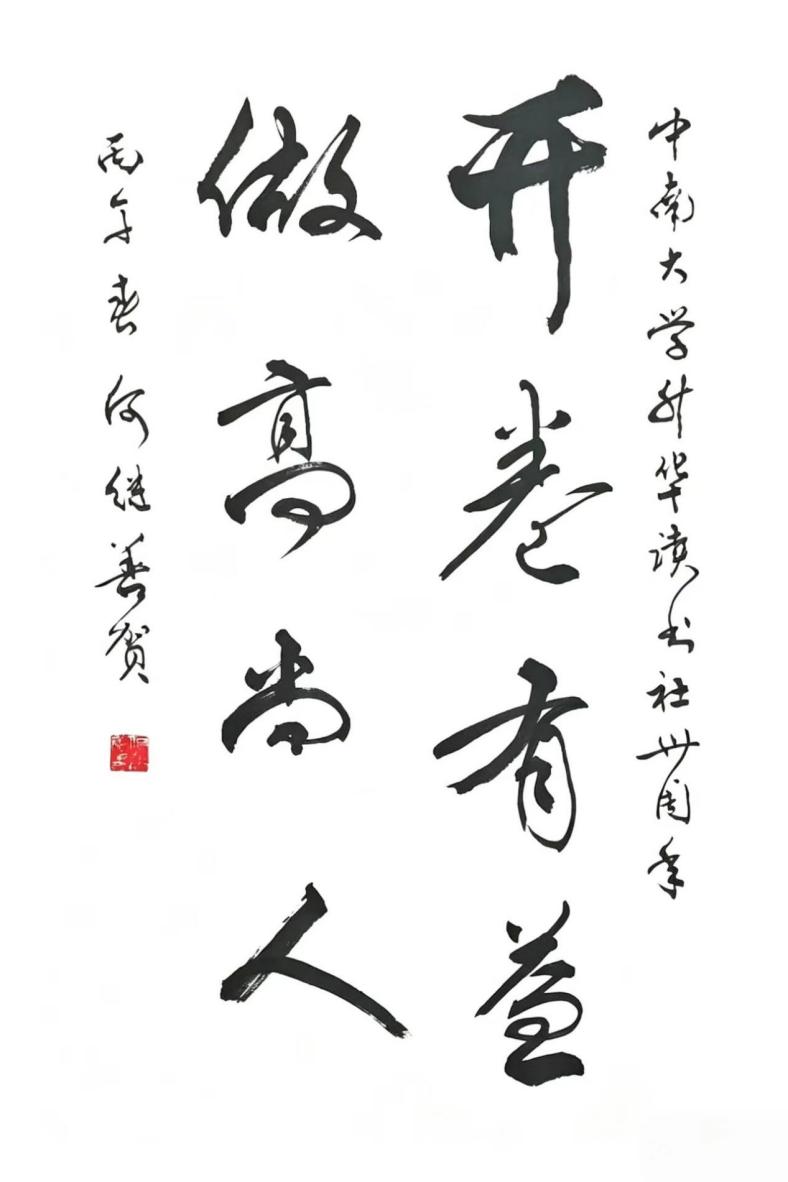 中南大学升华读书社卅周年
开卷有益
做高尚人
丙午春 何继善贺